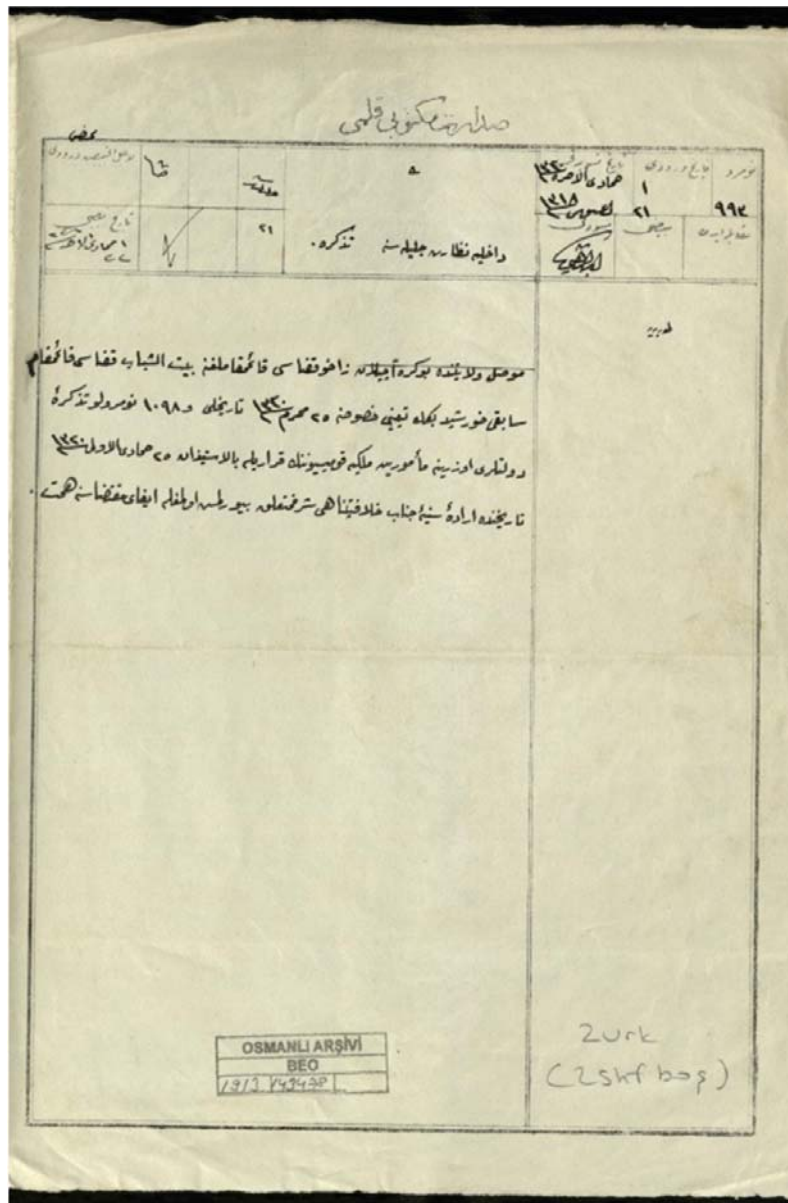 صدارت مکتوبی قلمی
نومرو
٩٩٣
تاریخ ورودی
١
٢١
جمادی الاخره ١٣٢٠
١٣١٨
مبیضی
داخلیه نظارت جلیله سنه تذکره .
٢١
تاریخ تبییضی
موصل ولایتنده زاخو قضاسی قائمقاملغنه بیت الشباب قضاسی قائمقام
سابقی خورشید بكك تعیینی خصوصنه ٢٥ محرم ١٣٢٠ تاریخلی و ١٠٩٨ نومرولو تذکرهٔ
دولتلری اوزرینه مأمورین ملکیه قومیسیوننك قراریله بالاستیذان ٢٥ جمادی الاولی ١٣٢٠
تاریخنده ارادهٔ سنیهٔ جناب خلافتپناهی شرفتعلق بیورلمش اولمغله ایفای مقتضاسنه همت .
OSMANLI ARŞİVİ
BEO
1913 143478
2 urk
(2 shf boş)